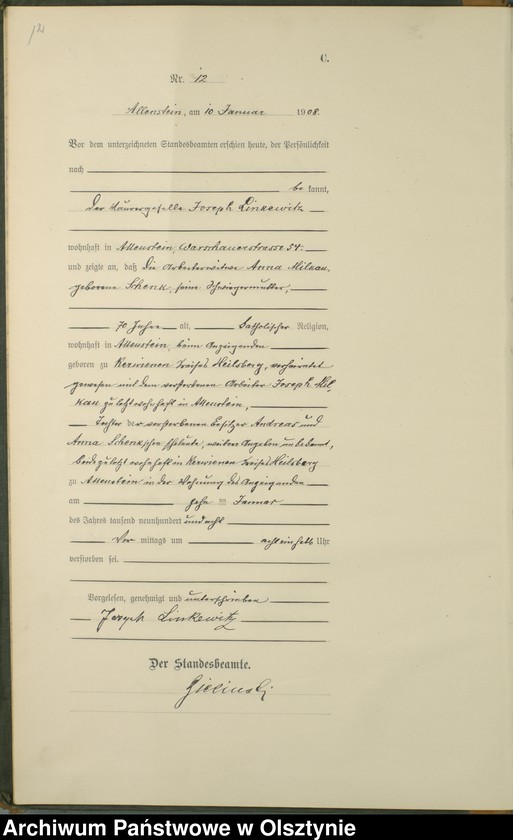 12
C.
Nr. 12
Allenstein, am 10 Januar 1908.
Vor dem unterzeichneten Standesbeamten erschien heute, der Persönlichkeit
nach
be kannt,
der Maurergeselle Joseph Linkewitz
wohnhaft in Allenstein, Warschauerstrasse 54.
und zeigte an, daß die Arbeiterwitwe Anna Milkau,
geborene Schenk, seine Schwiegermutter,
70 Jahre alt, katholischer Religion,
wohnhaft in Allenstein, beim Anzeigenden
geboren zu Kerwienen Kreises Heilsberg, verheiratet
gewesen mit dem verstorbenen Arbeiter Joseph Mil
kau zuletzt wohnhaft in Allenstein,
Tochter der verstorbenen Besitzer Andreas und
Anna Schenkschen Eheleute, weitere Angaben unbekannt,
beide zuletzt wohnhaft in Kerwienen Kreises Heilsberg
zu Allenstein in der Wohnung des Anzeigenden
am zehn ten Januar
des Jahres tausend neunhundert und acht
Vor mittags um acht einhalb Uhr
verstorben sei.
Vorgelesen, genehmigt und unterschrieben
Joseph Linkewitz
Der Standesbeamte.
Archiwum Państwowe w Olsztynie